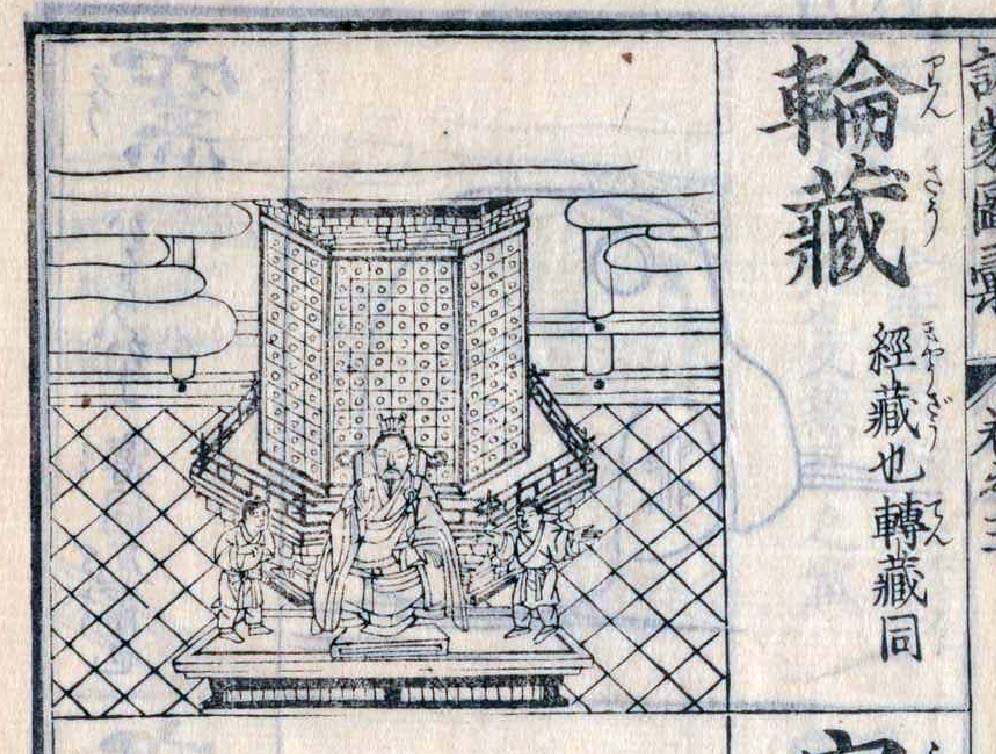 訓蒙圖彙
巻之三
輪藏
りんざう
經藏也轉藏同
きやうざう
てん